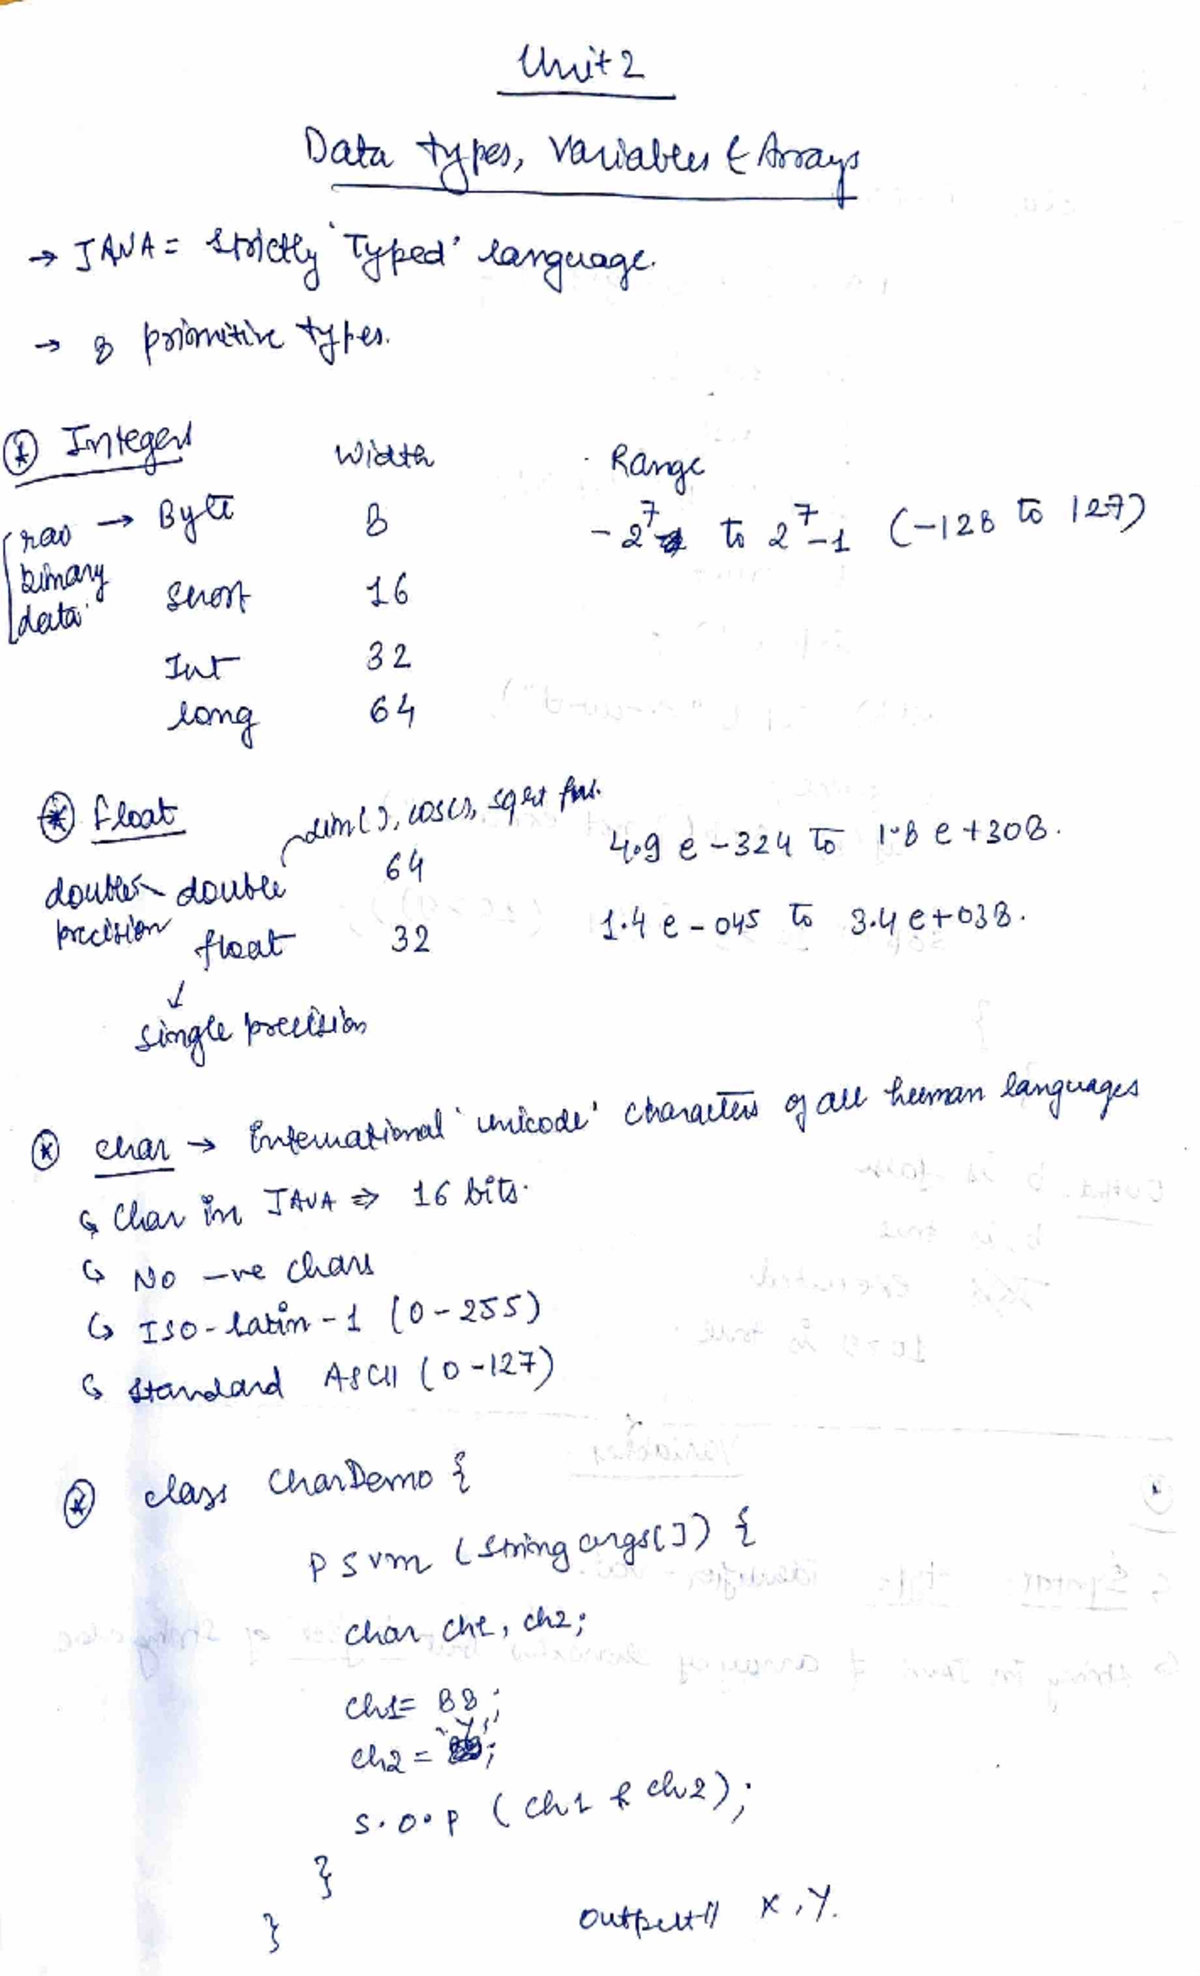 Unit 2
Data types, Variables & Arrays
→ JAVA = Strictly 'Typed' language.
→ 8 primitive types.
* Integers Width Range
raw binary data → Byte 8 -2^7 to 2^7-1 (-128 to 127)
Short 16
Int 32
long 64
* float sin(), cos(), sqrt fns.
double precision double 64 4.9 e-324 to 1.8 e+308.
float 32 1.4 e-045 to 3.4 e+038.
↓
single precision
* char → International 'unicode' characters of all human languages
↳ Char in JAVA ⇒ 16 bits.
↳ No -ve chars
↳ ISO-Latin-1 (0-255)
↳ Standard ASCII (0-127)
* class CharDemo {
P S v m (String args[]) {
char ch1, ch2;
ch1= 88;
ch2 = 'Y';
S.O.P (ch1 & ch2);
}
}
Output// X, Y.